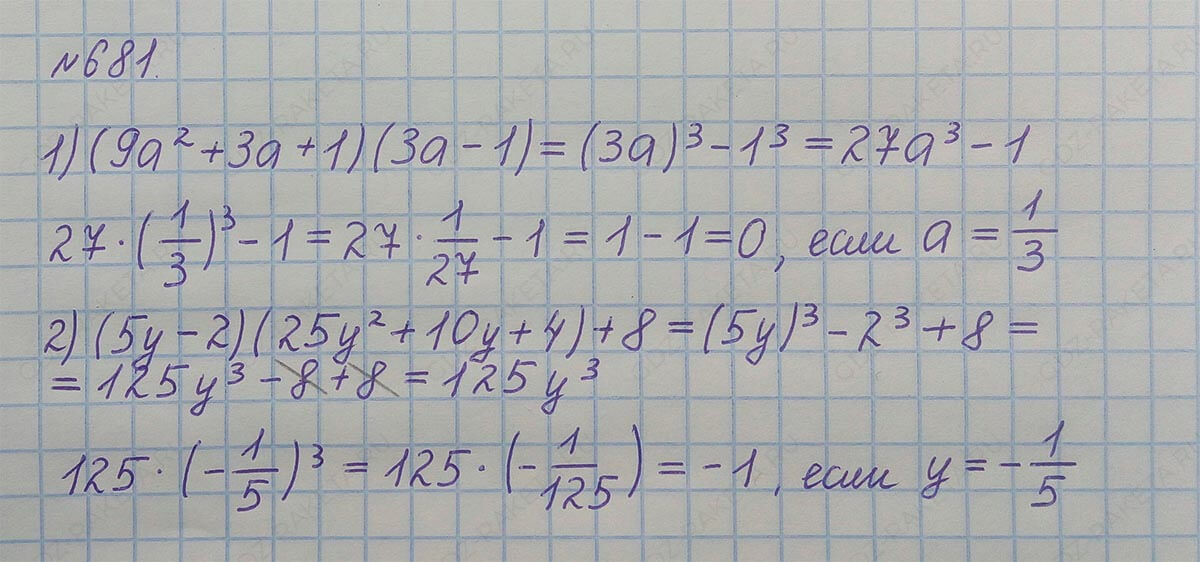 №681.
1) (9a² + 3a + 1)(3a − 1) = (3a)³ − 1³ = 27a³ − 1
27 · (1/3)³ − 1 = 27 · 1/27 − 1 = 1 − 1 = 0, если a = 1/3
2) (5y − 2)(25y² + 10y + 4) + 8 = (5y)³ − 2³ + 8 =
= 125y³ − 8 + 8 = 125y³
125 · (−1/5)³ = 125 · (−1/125) = −1, если y = −1/5